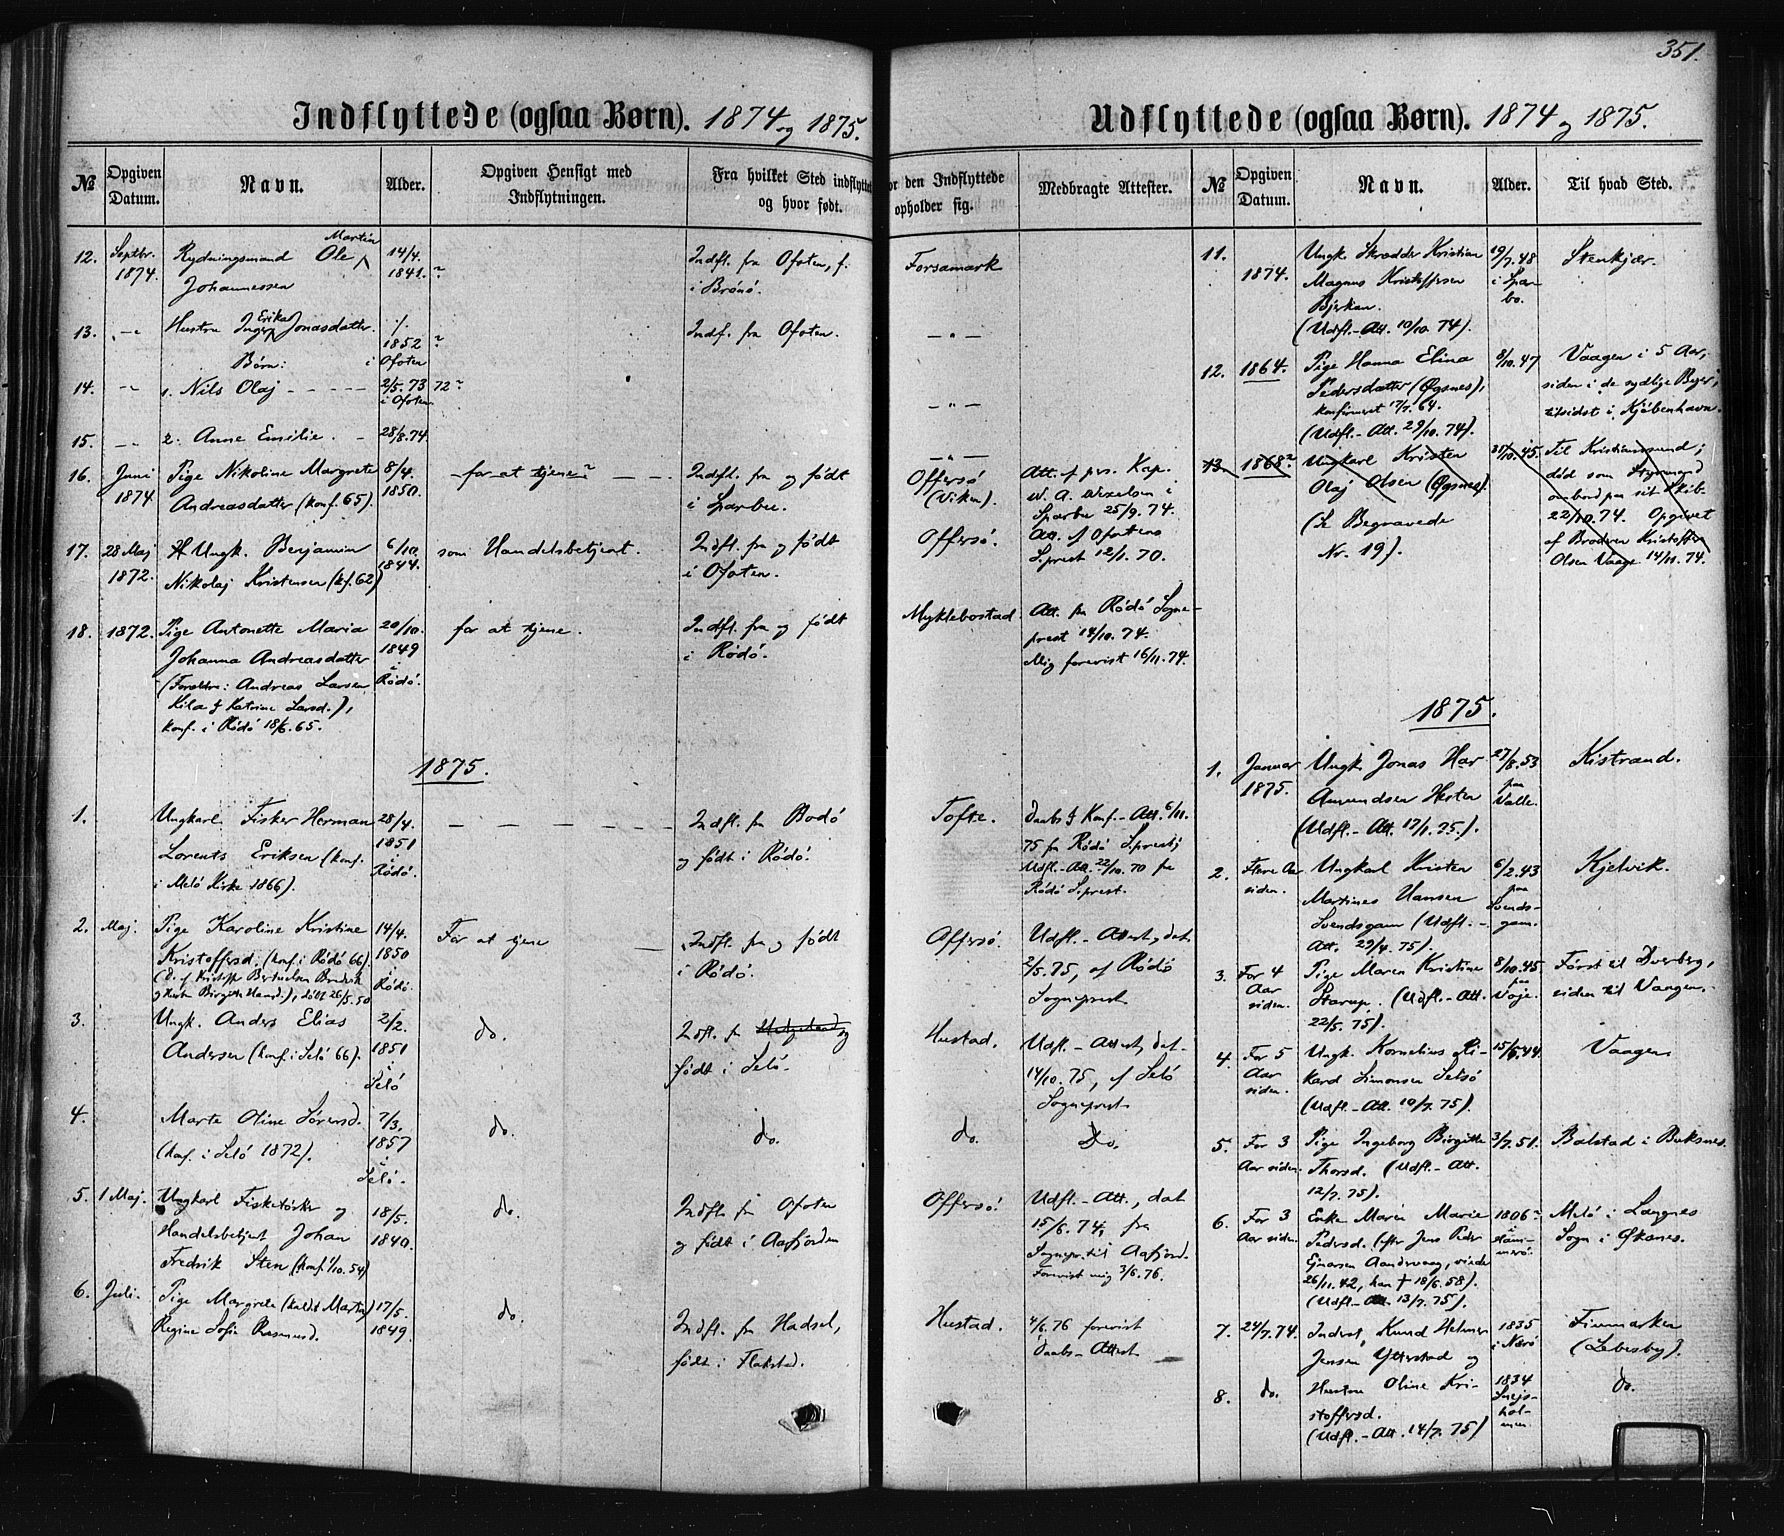 351.
Indflyttede (ogsaa Børn). 1874 og 1875.
№
Opgiven Datum.
Navn.
Alder.
Opgiven Hensigt med Indflytningen.
Fra hvilket Sted indflyttet og hvor født.
or den Indflyttede opholder sig.
Medbragte Attester.
12. Septbr. 1874.
Rydningsmand Ole Martin
Johannessen
14/4. 1841. ?
Indfl. fra Ofoten, f.
i Brönö.
Forsamark
13. -"-
Hustru Inger Erika Jonasdatter.
Børn:
1852 ?
i Ofoten
Indf. fra Ofoten.
- " -
14. -"-
1. Nils Olaj
2/5. 73 72?
i Ofoten
- " -
15. -"-
2. Anne Emilie.
28/8. 74.
- " -
16. Juni 1874
Pige Nikoline Margrete
Andreasdatter (konf. 65).
8/4. 1850.
for at tjene?
Indfl. fra og født
i Sparbu.
Offersö
(Viken).
Att. f pers. Kap.
W. A. Wexelsen i
Sparbu 25/9. 74.
17. 28 Maj 1872.
Ungk. Benjamin
Nikolaj Kristensen (kf. 62)
6/10. 1844.
som Handelsbetjent.
Indfl. fra og født
i Ofoten.
Offersö.
Att. f Ofotens
Sprest 12/1. 70.
18. 1872.
Pige Antonette Maria
Johanna Andreasdatter
(Foreldre: Andreas Larsen
Kila & Katrine Larsd.),
konf. i Rödö 18/6. 65.
20/10. 1849
i Rödö.
for at tjene.
Indfl. fra og født
i Rödö.
Myklebostad
Att. fra Rödö Sogne-
prest 14/10. 74.
Mig forevist 16/11. 74.
1875.
1.
Ungkarl Fisker Herman
Lorents Eriksen (konf.
i Melö Kirke 1866).
28/4. 1851
i Rödö.
Indfl. fra Bodö
og født i Rödö.
Tofte.
Daabs & Konf.-Att. 6/11.
75 fra Rödö Sprest;
Udfl.-Att. 22/10. 70 fra
Rödö Sprest.
2. Maj.
Pige Karoline Kristine
Kristoffersd. (konf. i Rödö 66).
(D. af Kristoffer Bertelsen
Birgitte Hansd.), döbt 26/5. 50
14/4. 1850
i Rödö.
For at tjene
Indfl. fra og født
i Rödö.
Offersö.
Udfl.-Attest, dat.
2/5. 75, af Rödö
Sogneprest
3.
Ungk. Anders Elias
Andersen (konf. i Selö 66).
2/2. 1851
i Selö
do.
Indfl. fr Helgeland og
født i Selö.
Hustad.
Udfl.-Attest, dat.
14/10. 75, af Selö
Sogneprest
4.
Marta Oline Sörensd.
(konf. i Selö 1872).
7/3. 1857
i Selö.
do.
do.
do.
Do.
5. 1 Maj.
Ungkarl Fisketörker og
Handelsbetjent Johan
Fredrik Sten (konf. 1/10. 54)
18/5. 1840.
do.
Indfl. fra Ofoten
og født i Aafjorden
Offersö.
Udfl.-Att., dat
15/6. 74, fra
Sognepr. til Aafjord.
Forevist mig 3/6. 76.
6. Juli.
Pige Margrete (kaldt Marta)
Regine Sofie Rasmusd.
17/5. 1849.
do.
Indfl. fra Hadsel,
født i Flakstad.
Hustad.
4/6. 76 forevist
Daabs-Attest
Udflyttede (ogsaa Børn). 1874 og 1875.
№
Opgiven Datum.
Navn.
Alder.
Til hvad Sted.
11. 1874.
Ungk. Skrædder Kristian
Magnus Kristoffersen
Bjerkan.
(Udfl.-Att. 10/10. 74).
19/7. 48
i Sparbo.
Stenkjær.
12. 1864.
Pige Hanna Elina
Pedersdatter (Øgsnes),
konfirmeret 17/7. 64.
(Udfl.-Att. 29/10. 74).
8/10. 47
Vaagen i 5 Aar,
siden i de sydlige Byer,
tilsidst i Kjöbenhavn.
13. 1868?
Ungkarl Kristen
Olaj Olsen (Øgsnes).
(Se Begravede
Nr. 19).
45.
Til Kristianssund;
död som Styrmand
ombord paa sit Skib
22/10. 74. Opgivet
af Broderen Kristoffer
Olsen Vaage 14/11. 74.
1875.
1. Januar 1875.
Ungk. Jonas Har
Amundsen Hesten
(Udfl.-Att. 17/1. 75).
27/8. 53
paa Valle.
Kistrand.
2. Flere Aar siden.
Ungkarl Kristen
Martines Hansen
Svendsgam (Udfl.-
Att. 29/4. 75).
6/2. 43
paa Svends-
gam.
Kjelvik.
3. For 4 Aar siden.
Pige Maren Kristine
Starup. (Udfl.-Att.
22/5. 75).
8/10. 45
paa Voje.
Först til Dverberg,
siden til Vaagen.
4. For 5 Aar siden.
Ungk. Kornelius Ri-
kard Simonsen Selsö
(Udfl.-Att. 10/7. 75).
15/6. 44.
Vaagen
5. For 3 Aar siden.
Pige Ingeborg Birgitte
Thorsd. (Udfl.-Att.
12/7. 75).
3/7. 51.
Balstad i Buksnes.
6. For 3 Aar siden.
Enke Maren Marie
Pedersd. (efter Jens Peder
Ejnarsen Aandsvaag, viede
26/11. 42, han † 18/6. 58).
(Udfl.-Att. 13/7. 75).
1806?
Melö i Langnes
Sogn i Øksnes.
7. 24/7. 74.
Inderst, Knud Helmer
Jensen Ytterstad og
1835
i Nærö
Finmarken
(Lebesby).
8. do.
Hustru Oline Kri-
stoffersd.
(Udfl.-Att. 14/7. 75)
1834
Snejs-
hol-
men.
do.